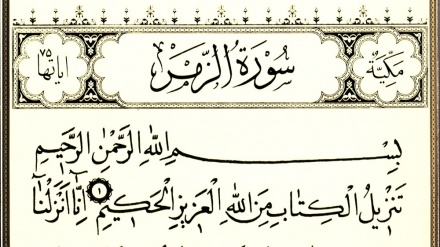 مكية سورة الزمر اياتها ٧٥
بِسْمِ اللهِ الرَّحْمٰنِ الرَّحِيمِ
تَنْزِيلُ الْكِتَابِ مِنَ اللهِ الْعَزِيزِ الْحَكِيمِ ١ اِنَّٓا اَنْزَلْنَٓا